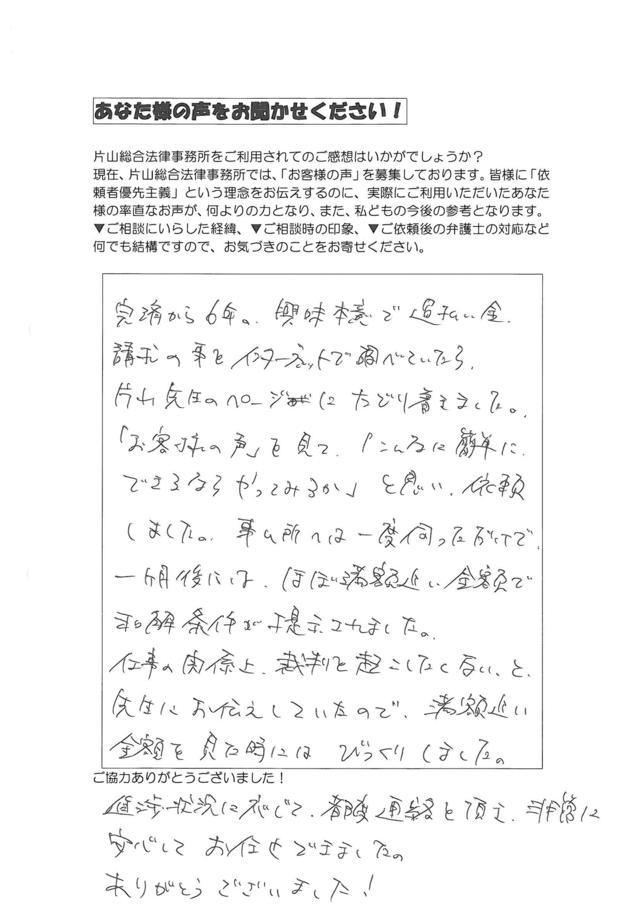 あなた様の声をお聞かせください！
片山総合法律事務所をご利用されてのご感想はいかがでしょうか？
現在、片山総合法律事務所では、「お客様の声」を募集しております。皆様に「依
頼者優先主義」という理念をお伝えするのに、実際にご利用いただいたあなた
様の率直なお声が、何よりの力となり、また、私どもの今後の参考となります。
▼ご相談にいらした経緯、▼ご相談時の印象、▼ご依頼後の弁護士の対応など
何でも結構ですので、お気づきのことをお寄せください。
完済から6年。興味本意で過払い金
請求の事をインターネットで調べていたら、
片山先生のページにたどり着きました。
「お客様の声」を見て、「こんなに簡単に
できるならやってみるか」と思い、依頼
しました。事ム所へは一度伺っただけで、
一ヶ月後には、ほぼ満額近い金額で
和解条件が提示されました。
仕事の関係上、裁判を起こしたくない、と、
先生にお伝えしていたので、満額近い
金額を見た時にはびっくりしました。
ご協力ありがとうございました！
進渉状況に応じて、都度連絡を頂き、非常に
安心してお任せできました。
ありがとうございました！